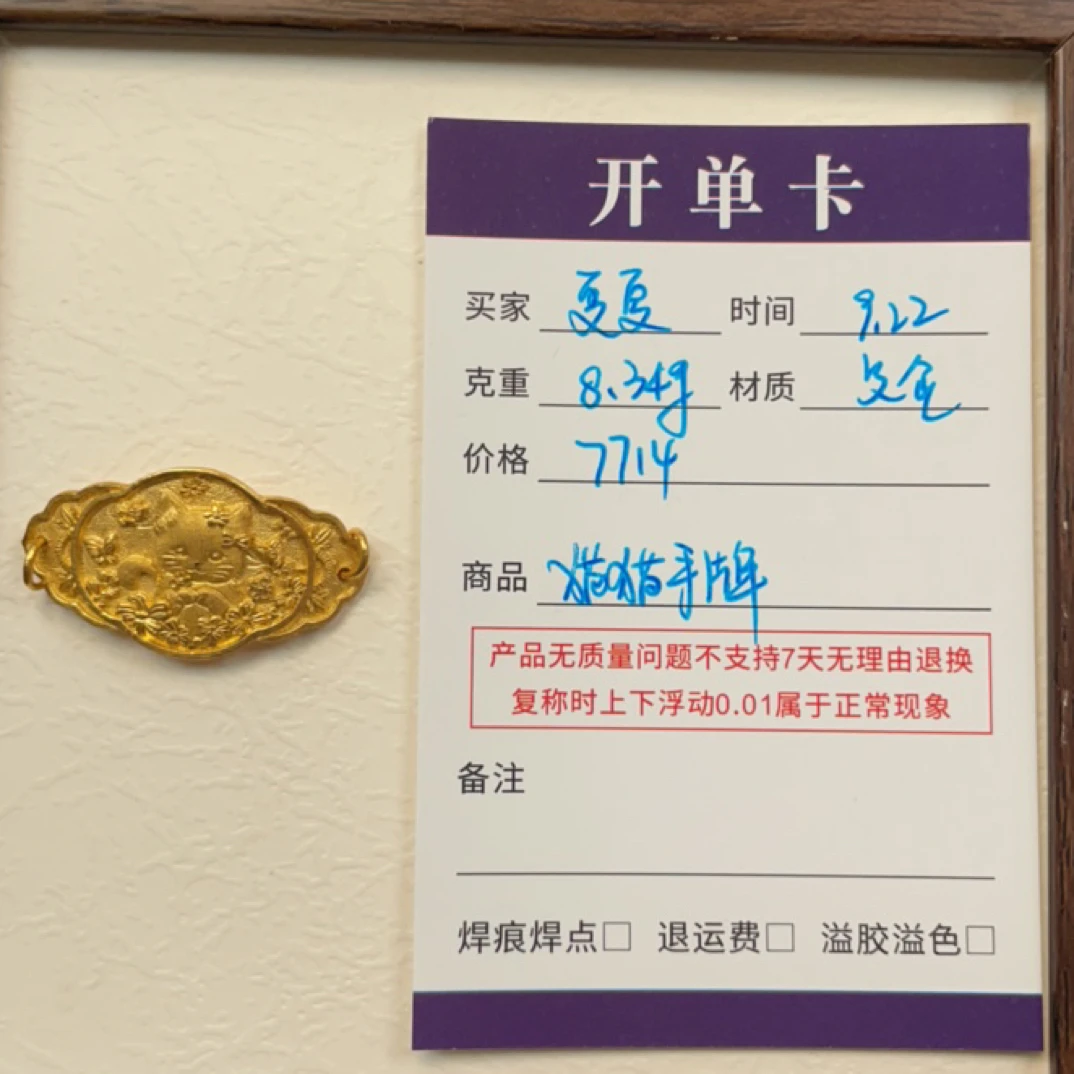 开单卡
买家 夏夏 时间 9.22
克重 8.34g 材质 足金
价格 7714
商品 猫猫手牌
产品无质量问题不支持7天无理由退换
复称时上下浮动0.01属于正常现象
备注
焊痕焊点□ 退运费□ 溢胶溢色□